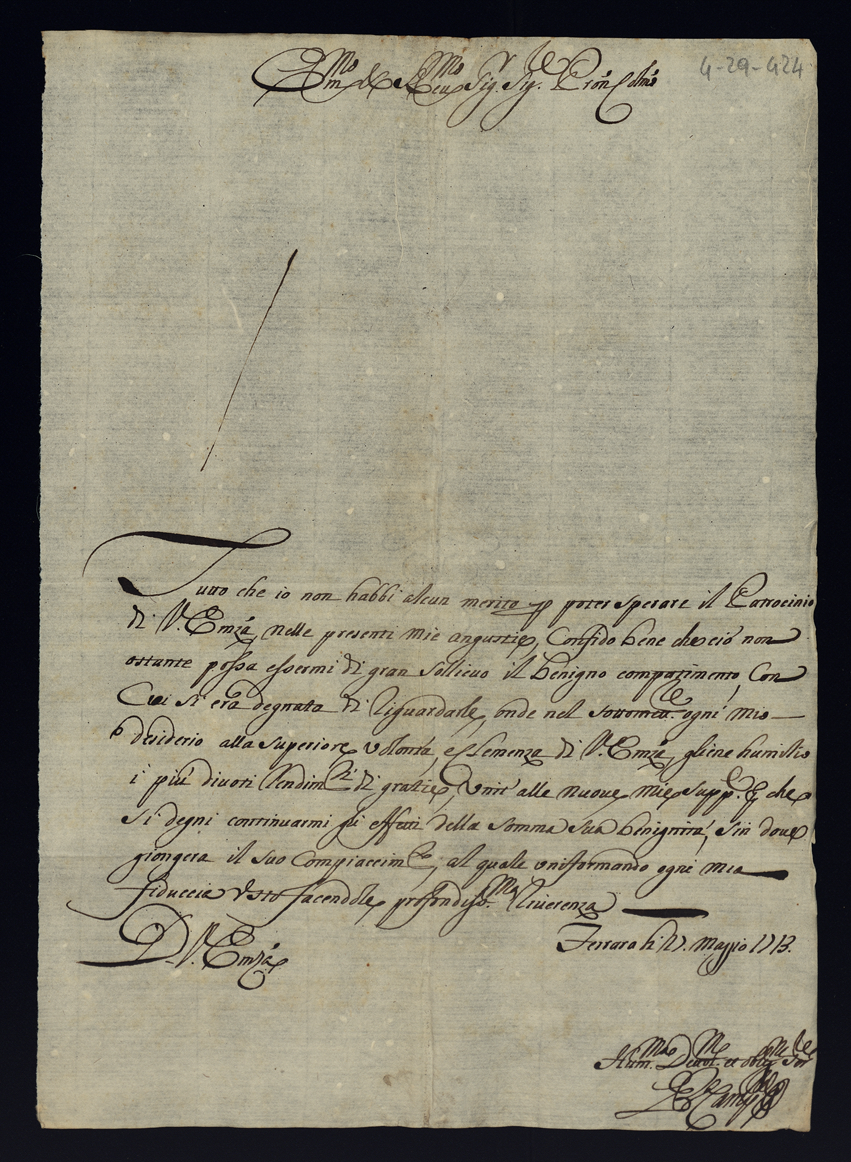 Em.mo e Reu.mo Sig.r Sig.re Pron Colmo
4-29-424
Tutto che io non habbi alcun merito p poter sperare il Patrocinio
di V. Emzá nelle presenti mie angustie, Confido bene che ciò non
ostante possa essermi di gran sollieuo il benigno compatimento, Con
Cui si era degnata di riguardarle, onde nel sottomett.re ogni mio
desiderio alla superiore volontà, e Clemenza di V. Emzá, gliene humilio
i più diuoti Rendim.ti di gratie, vniti alle nuoue mie supp.e che
si degni continuarmi gli effetti della somma sua benignità, sin doue
giongerà il suo Compiacim.to, al quale vniformando ogni mia
fiduccia resto facendole profondiss.ma Riuerenza
D. V. Emzá
Ferrara li 17. Maggio 1713.
Hum.mo Deuot.mo et oblig.mo Ser.re